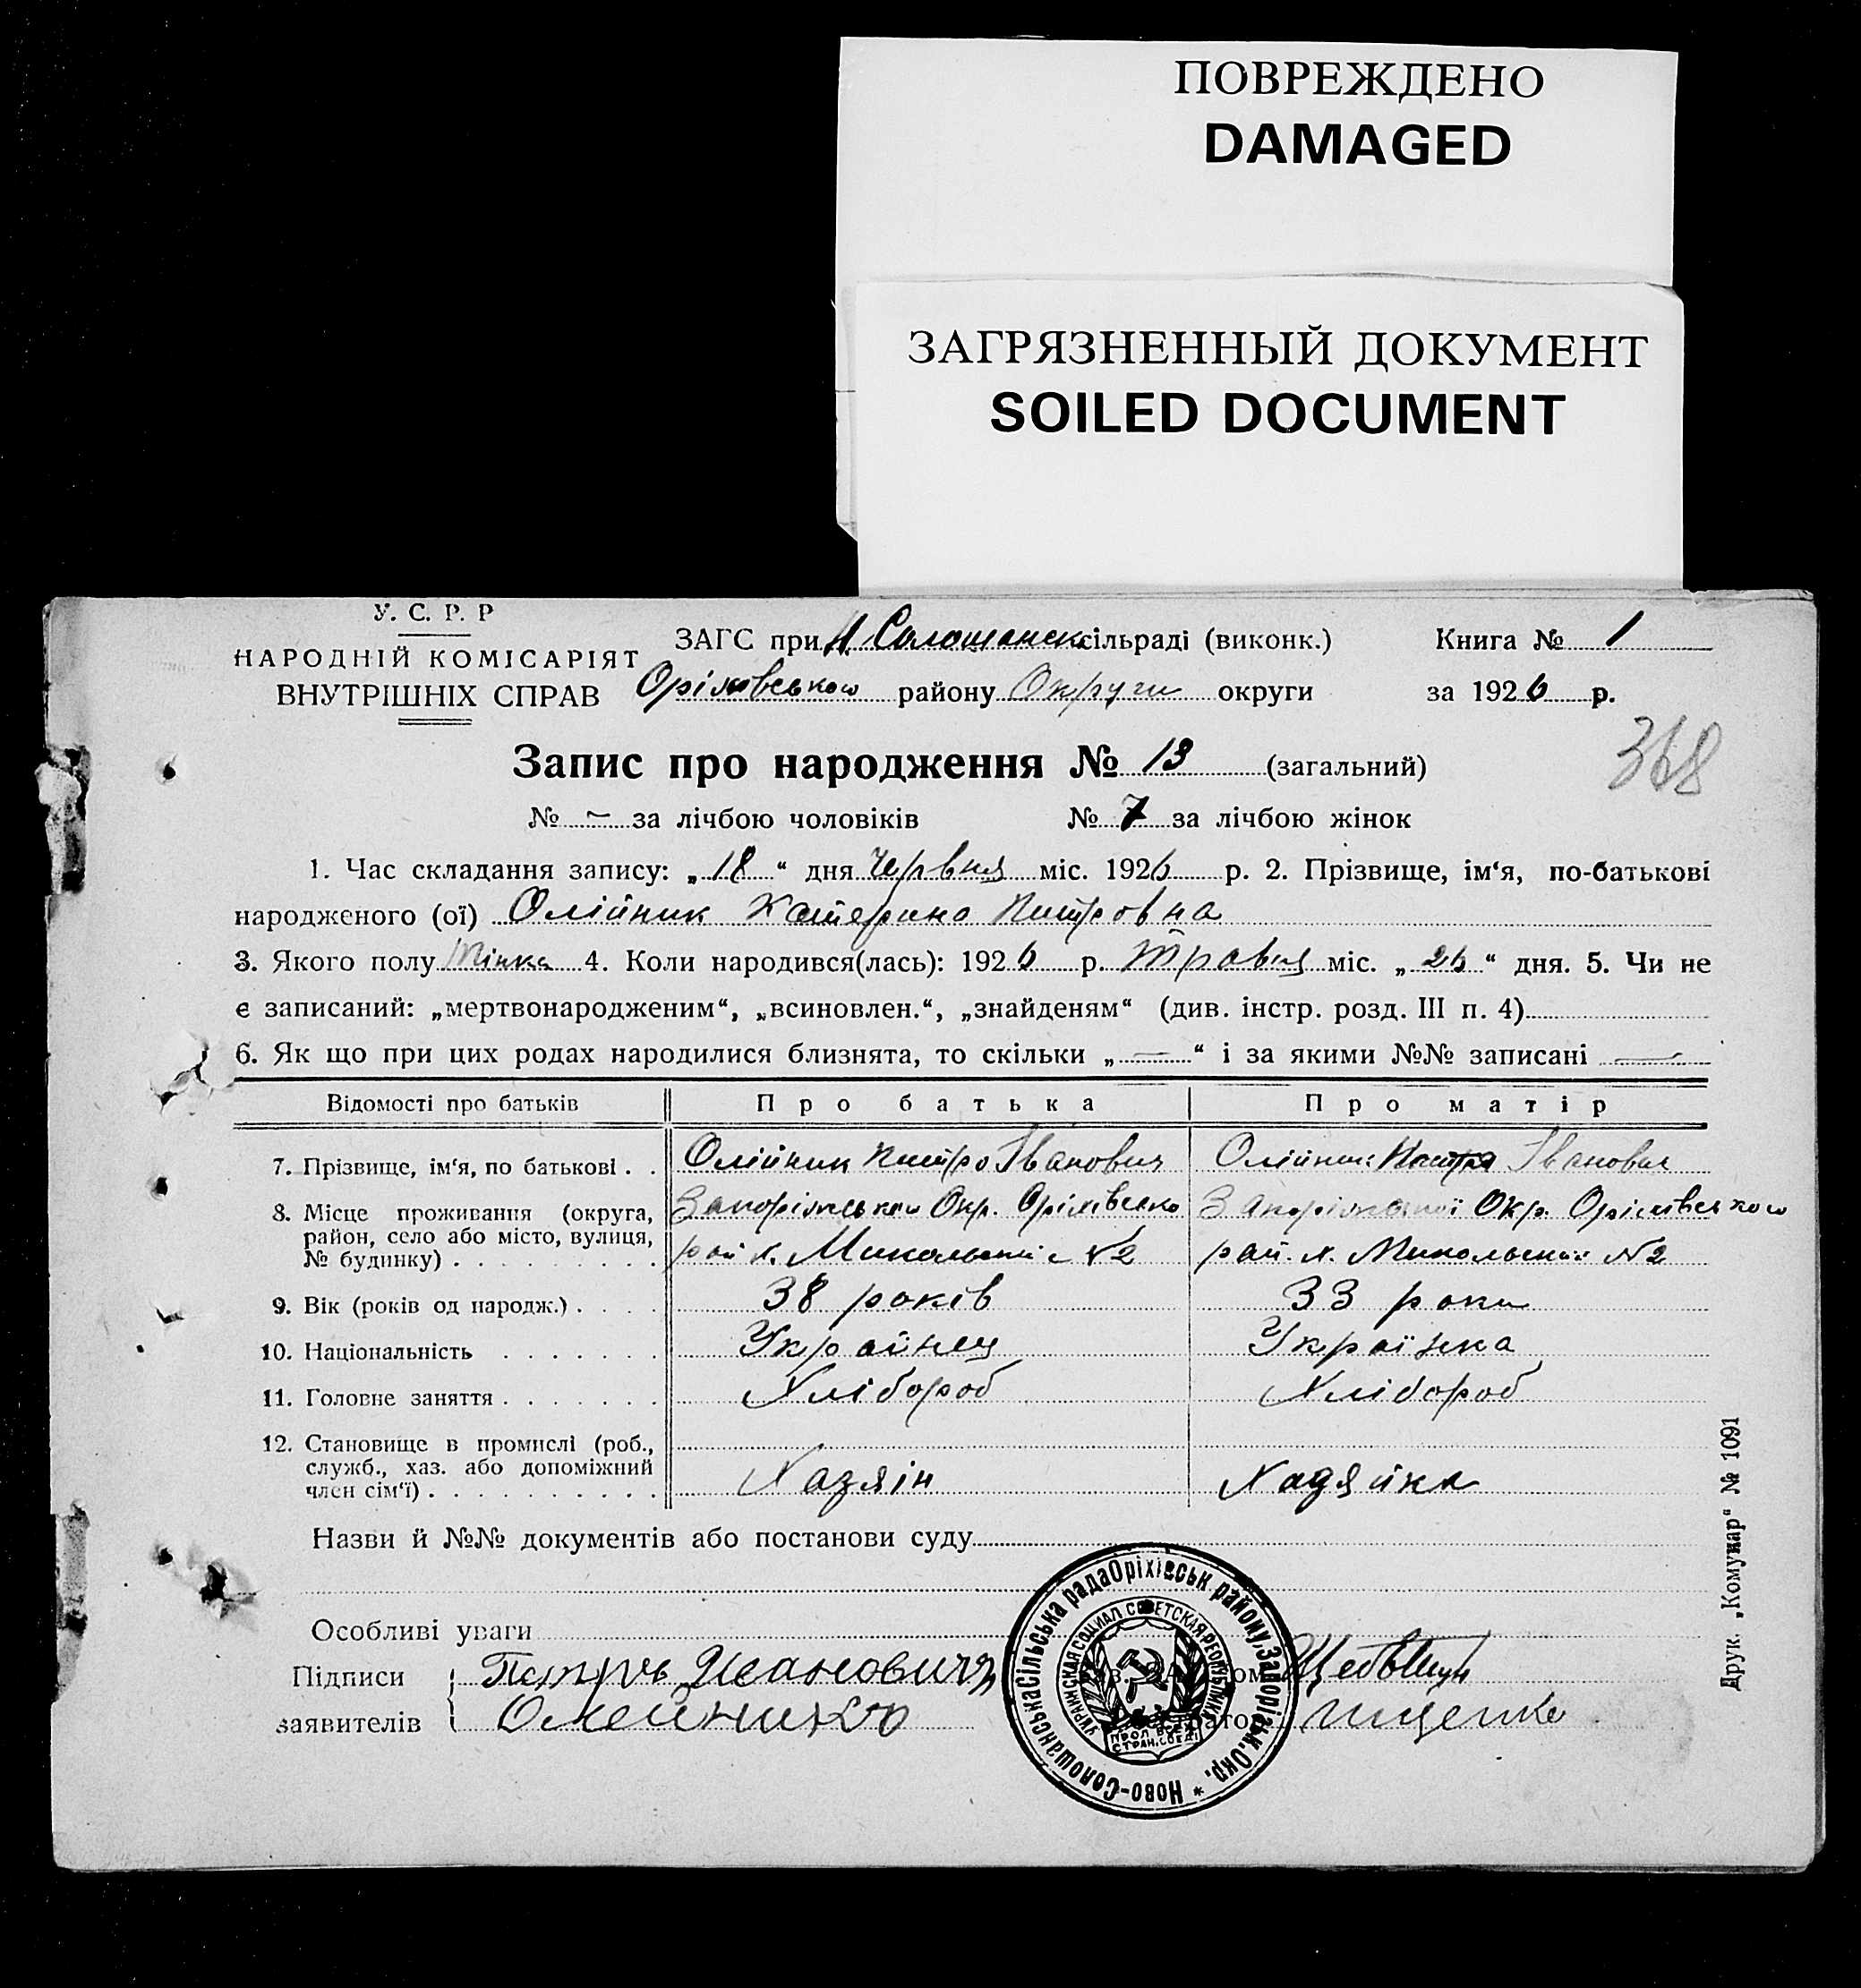 ПОВРЕЖДЕНО
DAMAGED
ЗАГРЯЗНЕННЫЙ ДОКУМЕНТ
SOILED DOCUMENT
У. С. Р. Р
НАРОДНІЙ КОМІСАРІЯТ
ВНУТРІШНІХ СПРАВ
ЗАГС при Н. Солошанск сільраді (виконк.) Книга № 1
Оріхівського району Округи округи за 1926 р.
368
Запис про народження № 13 (загальний)
№ – за лічбою чоловіків № 7 за лічбою жінок
1. Час складання запису: „18“ дня Червня міс. 1926 р. 2. Прізвище, ім‘я, по-батькові
народженого (ої) Олійник Катерина Питровна
3. Якого полу Жінка 4. Коли народився(лась): 1926 р. Травня міс. „26“ дня. 5. Чи не
є записаний: „мертвонародженим“, „всиновлен.“, „знайденям“ (див. інстр. розд. III п. 4)
6. Як що при цих родах народилися близнята, то скільки „—“ і за якими №№ записані —
Відомості про батьків Про батька Про матір
7. Прізвище, ім‘я, по батькові . . Олійник Питро Іванович Олійник Іванович
8. Місце проживання (округа, район, село або місто, вулиця, № будинку) . . . . . . . . . Запоріжського Окр. Оріхівсько Запоріжської Окр. Оріхівського
рай х. Микольський №2 рай. х. Микольский №2
9. Вік (років од народж.) . . . . 38 років 33 роки
10. Національність . . . . . . . Українец Українка
11. Головне заняття . . . . . . . Хлібороб Хлібороб
12. Становище в промислі (роб., служб., хаз. або допоміжний член сім‘ї) . . . . . . . . . . Хазяін Хазяйка
Назви й №№ документів або постанови суду
Особливі уваги
Підписи заявителів
Петръ Иванович
Олейникъ
Ищенко
Ново-Солошанська Сільська рада Оріхівськ району, Запорізьк. Окр. *
УКРАИНСКАЯ СОЦИАЛ СОВЕТСКАЯ РЕСПУБЛИКА
Друк. „Комунар“ № 1091